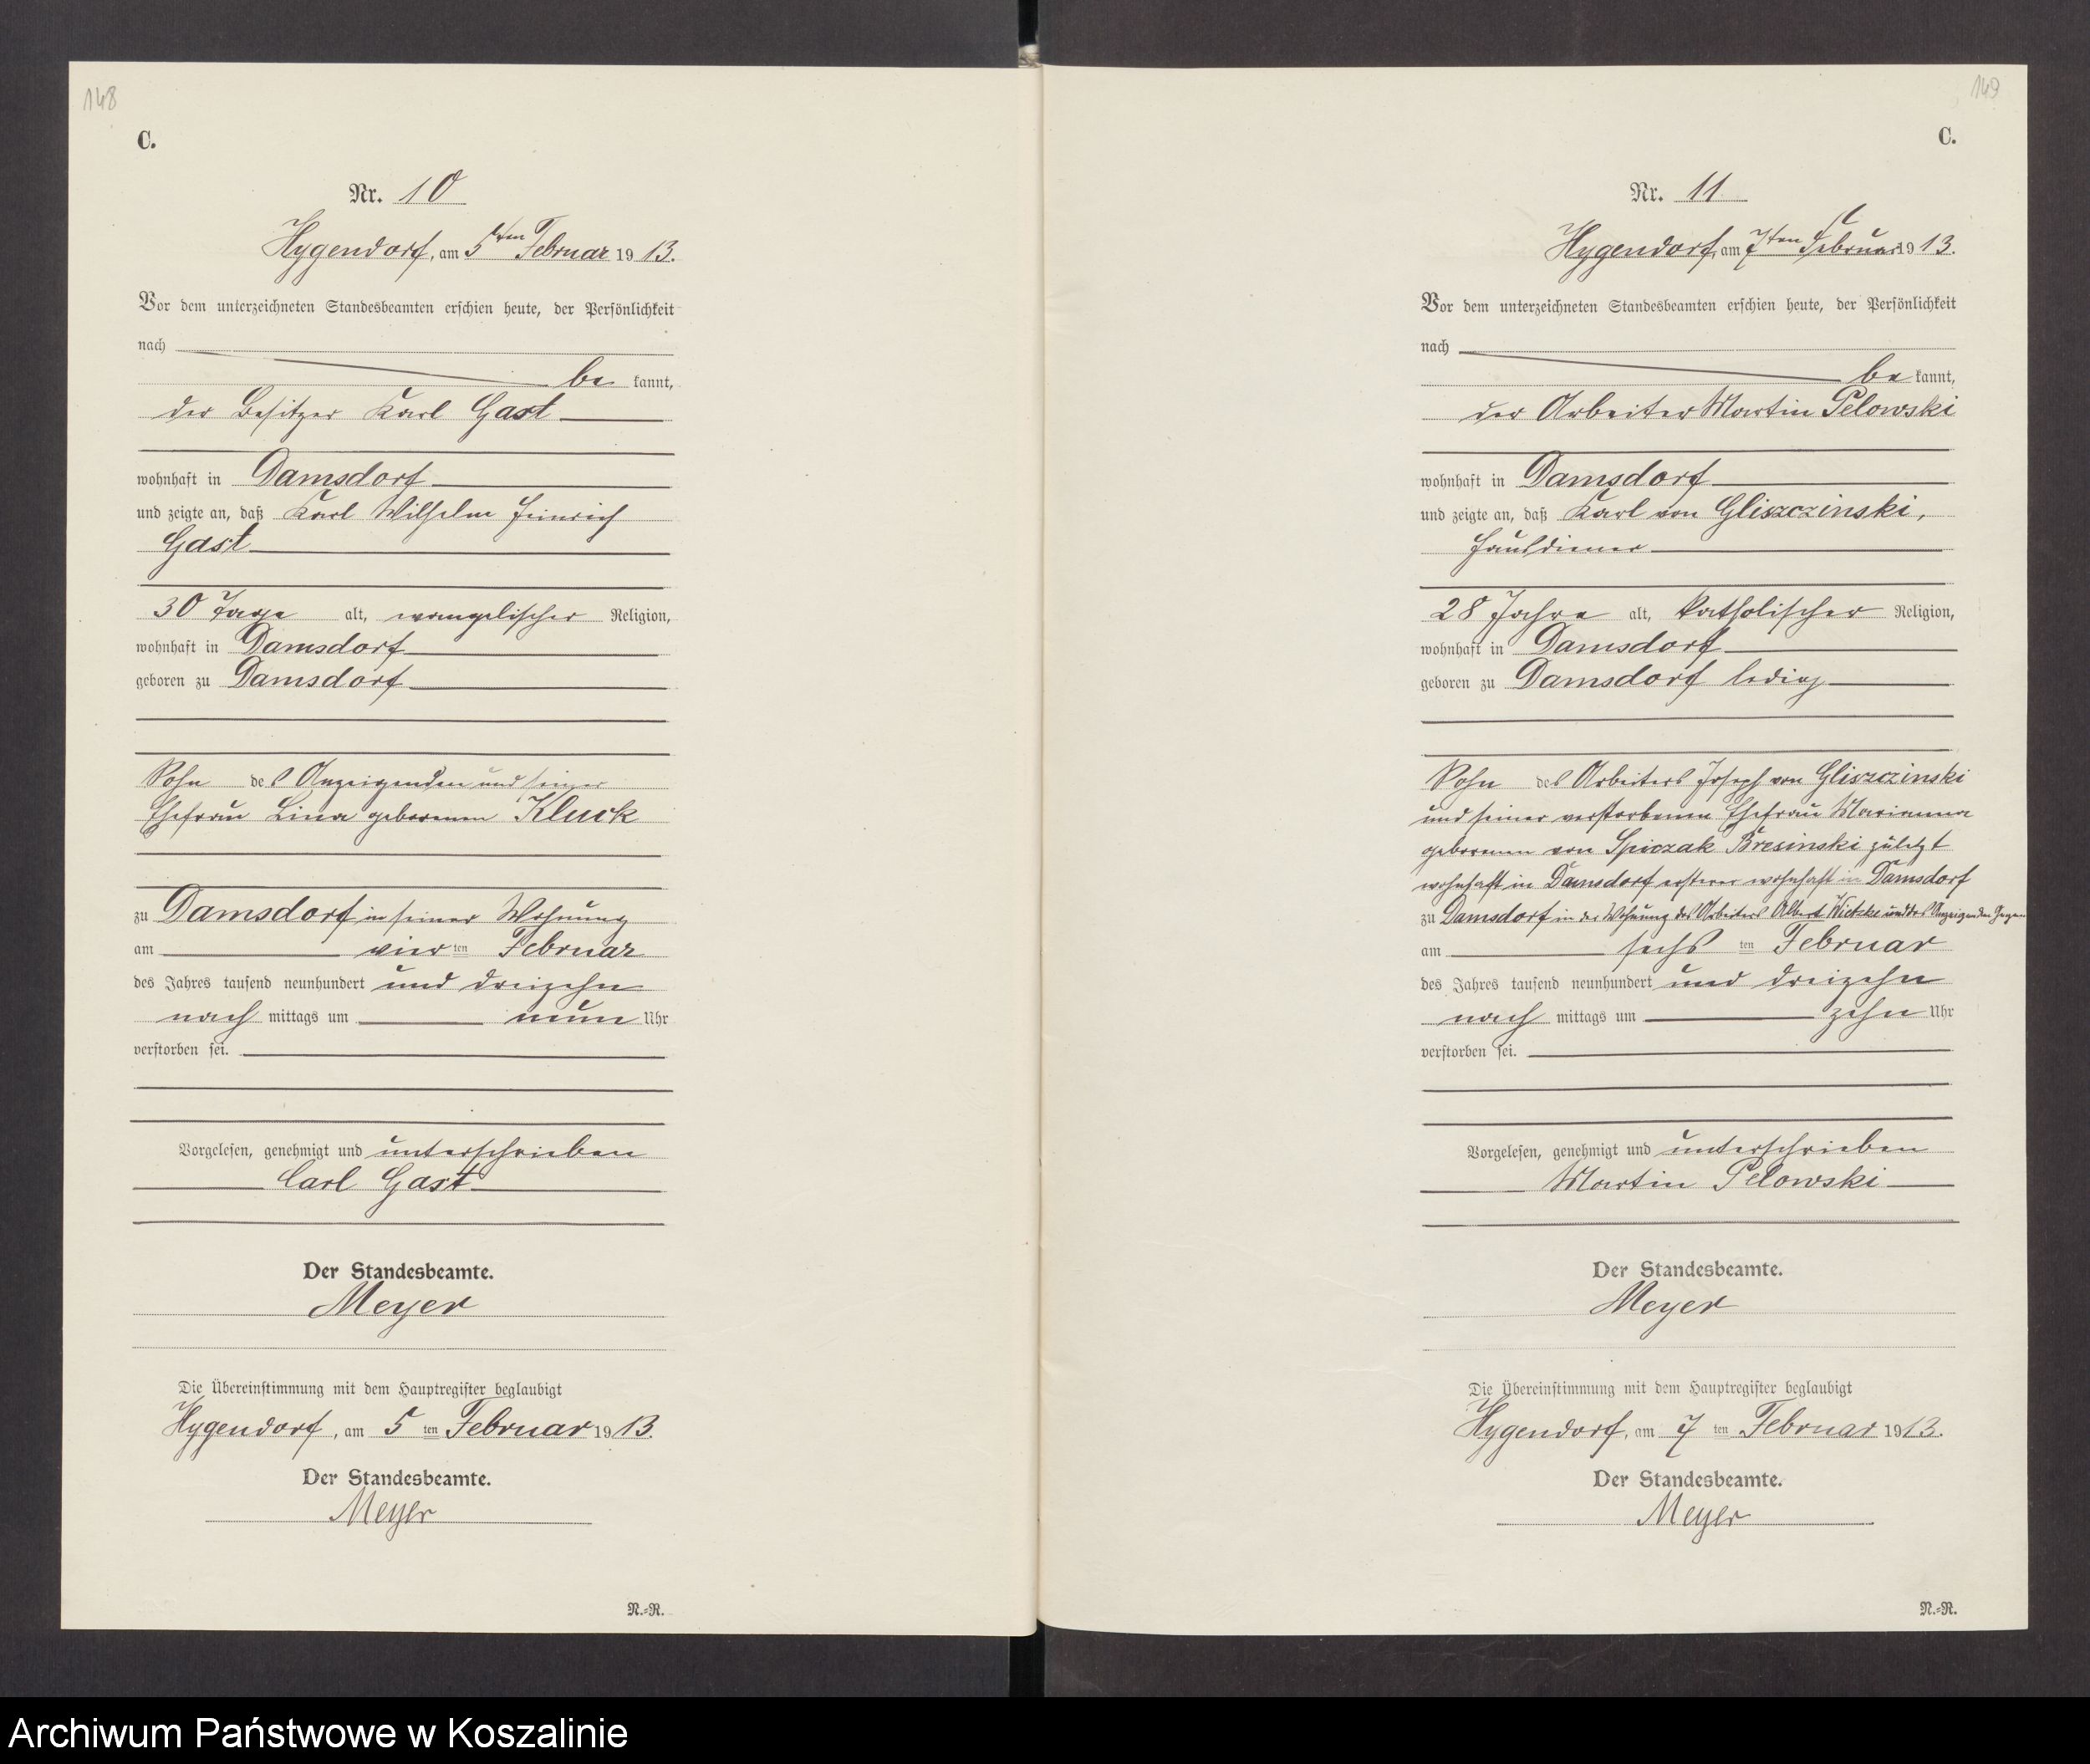 148
C.
Nr. 10
Hygendorf, am 5ten Februar 1913.
Vor dem unterzeichneten Standesbeamten erschien heute, der Persönlichkeit
nach
be kannt,
der Besitzer Karl Gast
wohnhaft in Damsdorf
und zeigte an, daß Karl Wilhelm Heinrich
Gast
30 Tage alt, evangelischer Religion,
wohnhaft in Damsdorf
geboren zu Damsdorf
Sohn des Anzeigenden und seiner
Ehefrau Lina geborenen Kluck
zu Damsdorf in seiner Wohnung
am vier ten Februar
des Jahres tausend neunhundert und dreizehn
nach mittags um neun Uhr
verstorben sei.
Vorgelesen, genehmigt und unterschrieben
Carl Gast
Der Standesbeamte.
Meyer
Die Übereinstimmung mit dem Hauptregister beglaubigt
Hygendorf, am 5 ten Februar 1913.
Der Standesbeamte.
Meyer
N.=R.
149
C.
Nr. 11
Hygendorf, am 7ten Februar 1913.
Vor dem unterzeichneten Standesbeamten erschien heute, der Persönlichkeit
nach
be kannt,
der Arbeiter Martin Pelowski
wohnhaft in Damsdorf
und zeigte an, daß Karl von Gliszczinski,
Hausdiener
28 Jahre alt, katholischer Religion,
wohnhaft in Damsdorf
geboren zu Damsdorf ledig
Sohn des Arbeiters Joseph von Gliszczinski
und seiner verstorbenen Ehefrau Marianna
geborenen von Spiczak Bresinski zuletzt
wohnhaft in Damsdorf ersterer wohnhaft in Damsdorf
zu Damsdorf in der Wohnung des Arbeiters Albert Wietzke und des Anzeigenden Gegen
am sechs ten Februar
des Jahres tausend neunhundert und dreizehn
nach mittags um zehn Uhr
verstorben sei.
Vorgelesen, genehmigt und unterschrieben
Martin Pelowski
Der Standesbeamte.
Meyer
Die Übereinstimmung mit dem Hauptregister beglaubigt
Hygendorf, am 7 ten Februar 1913.
Der Standesbeamte.
Meyer
N.=R.
Archiwum Państwowe w Koszalinie